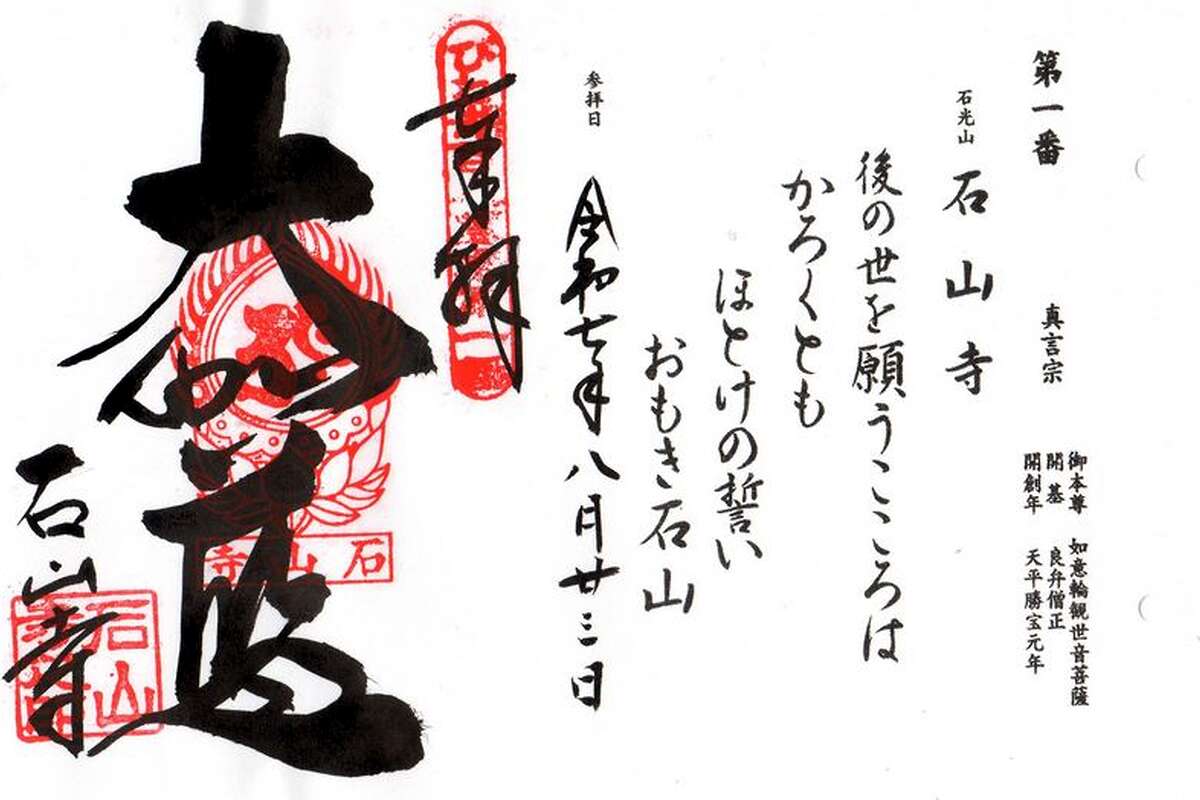 第一番
真言宗
御本尊 如意輪観世音菩薩
開基 良弁僧正
開創年 天平勝宝元年
石光山 石山寺
後の世を願うこころは
かろくとも
ほとけの誓い
おもき石山
参拝日 令和七年八月廿三日
奉拝
大伽藍
石山寺
石山寺